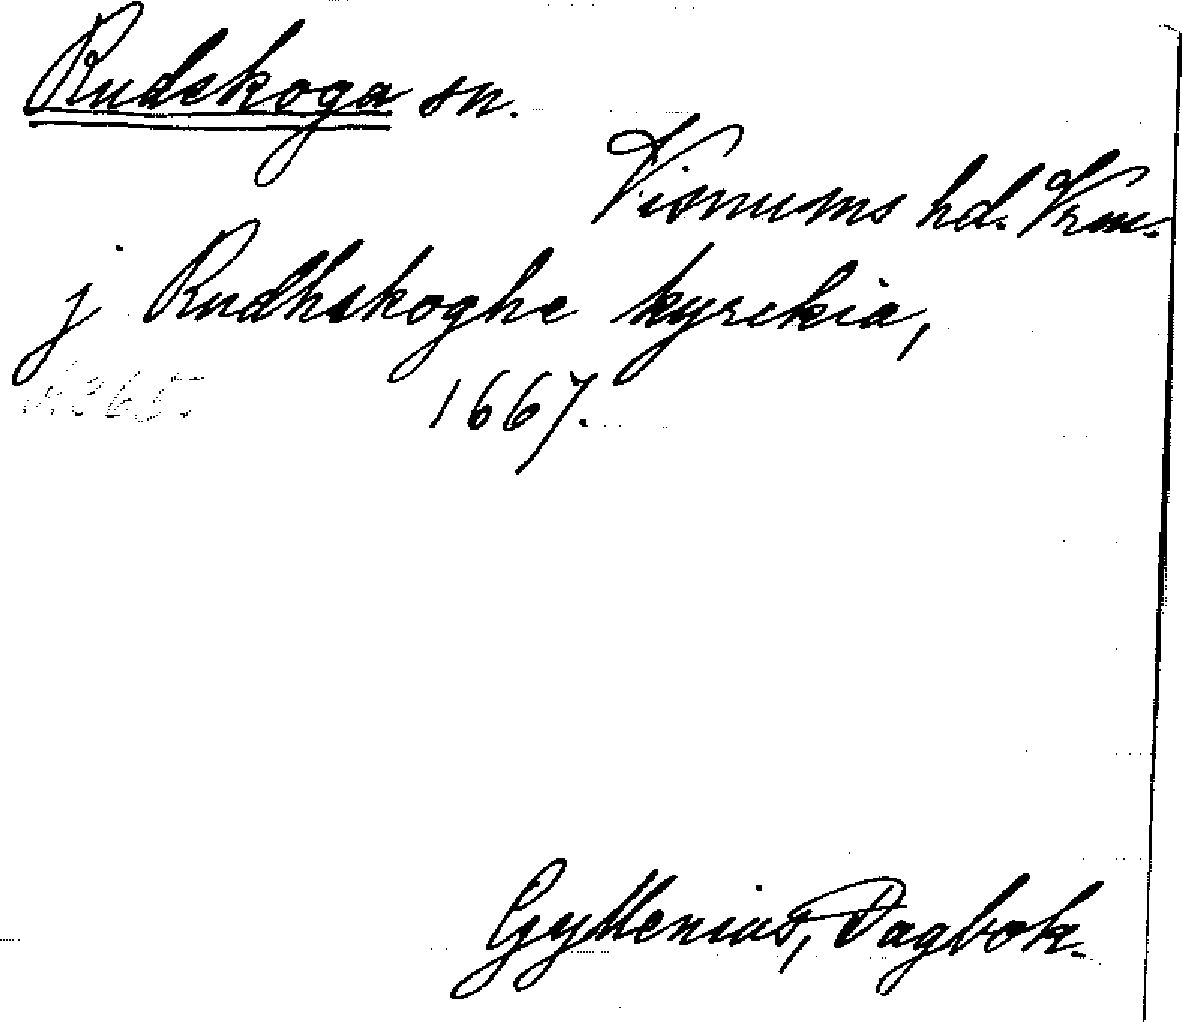 Rudskoga sn.
Visnums hd. Vrm.
j Rudhskoghe kyrckia,
1667.
Gyllenius, Dagbok.